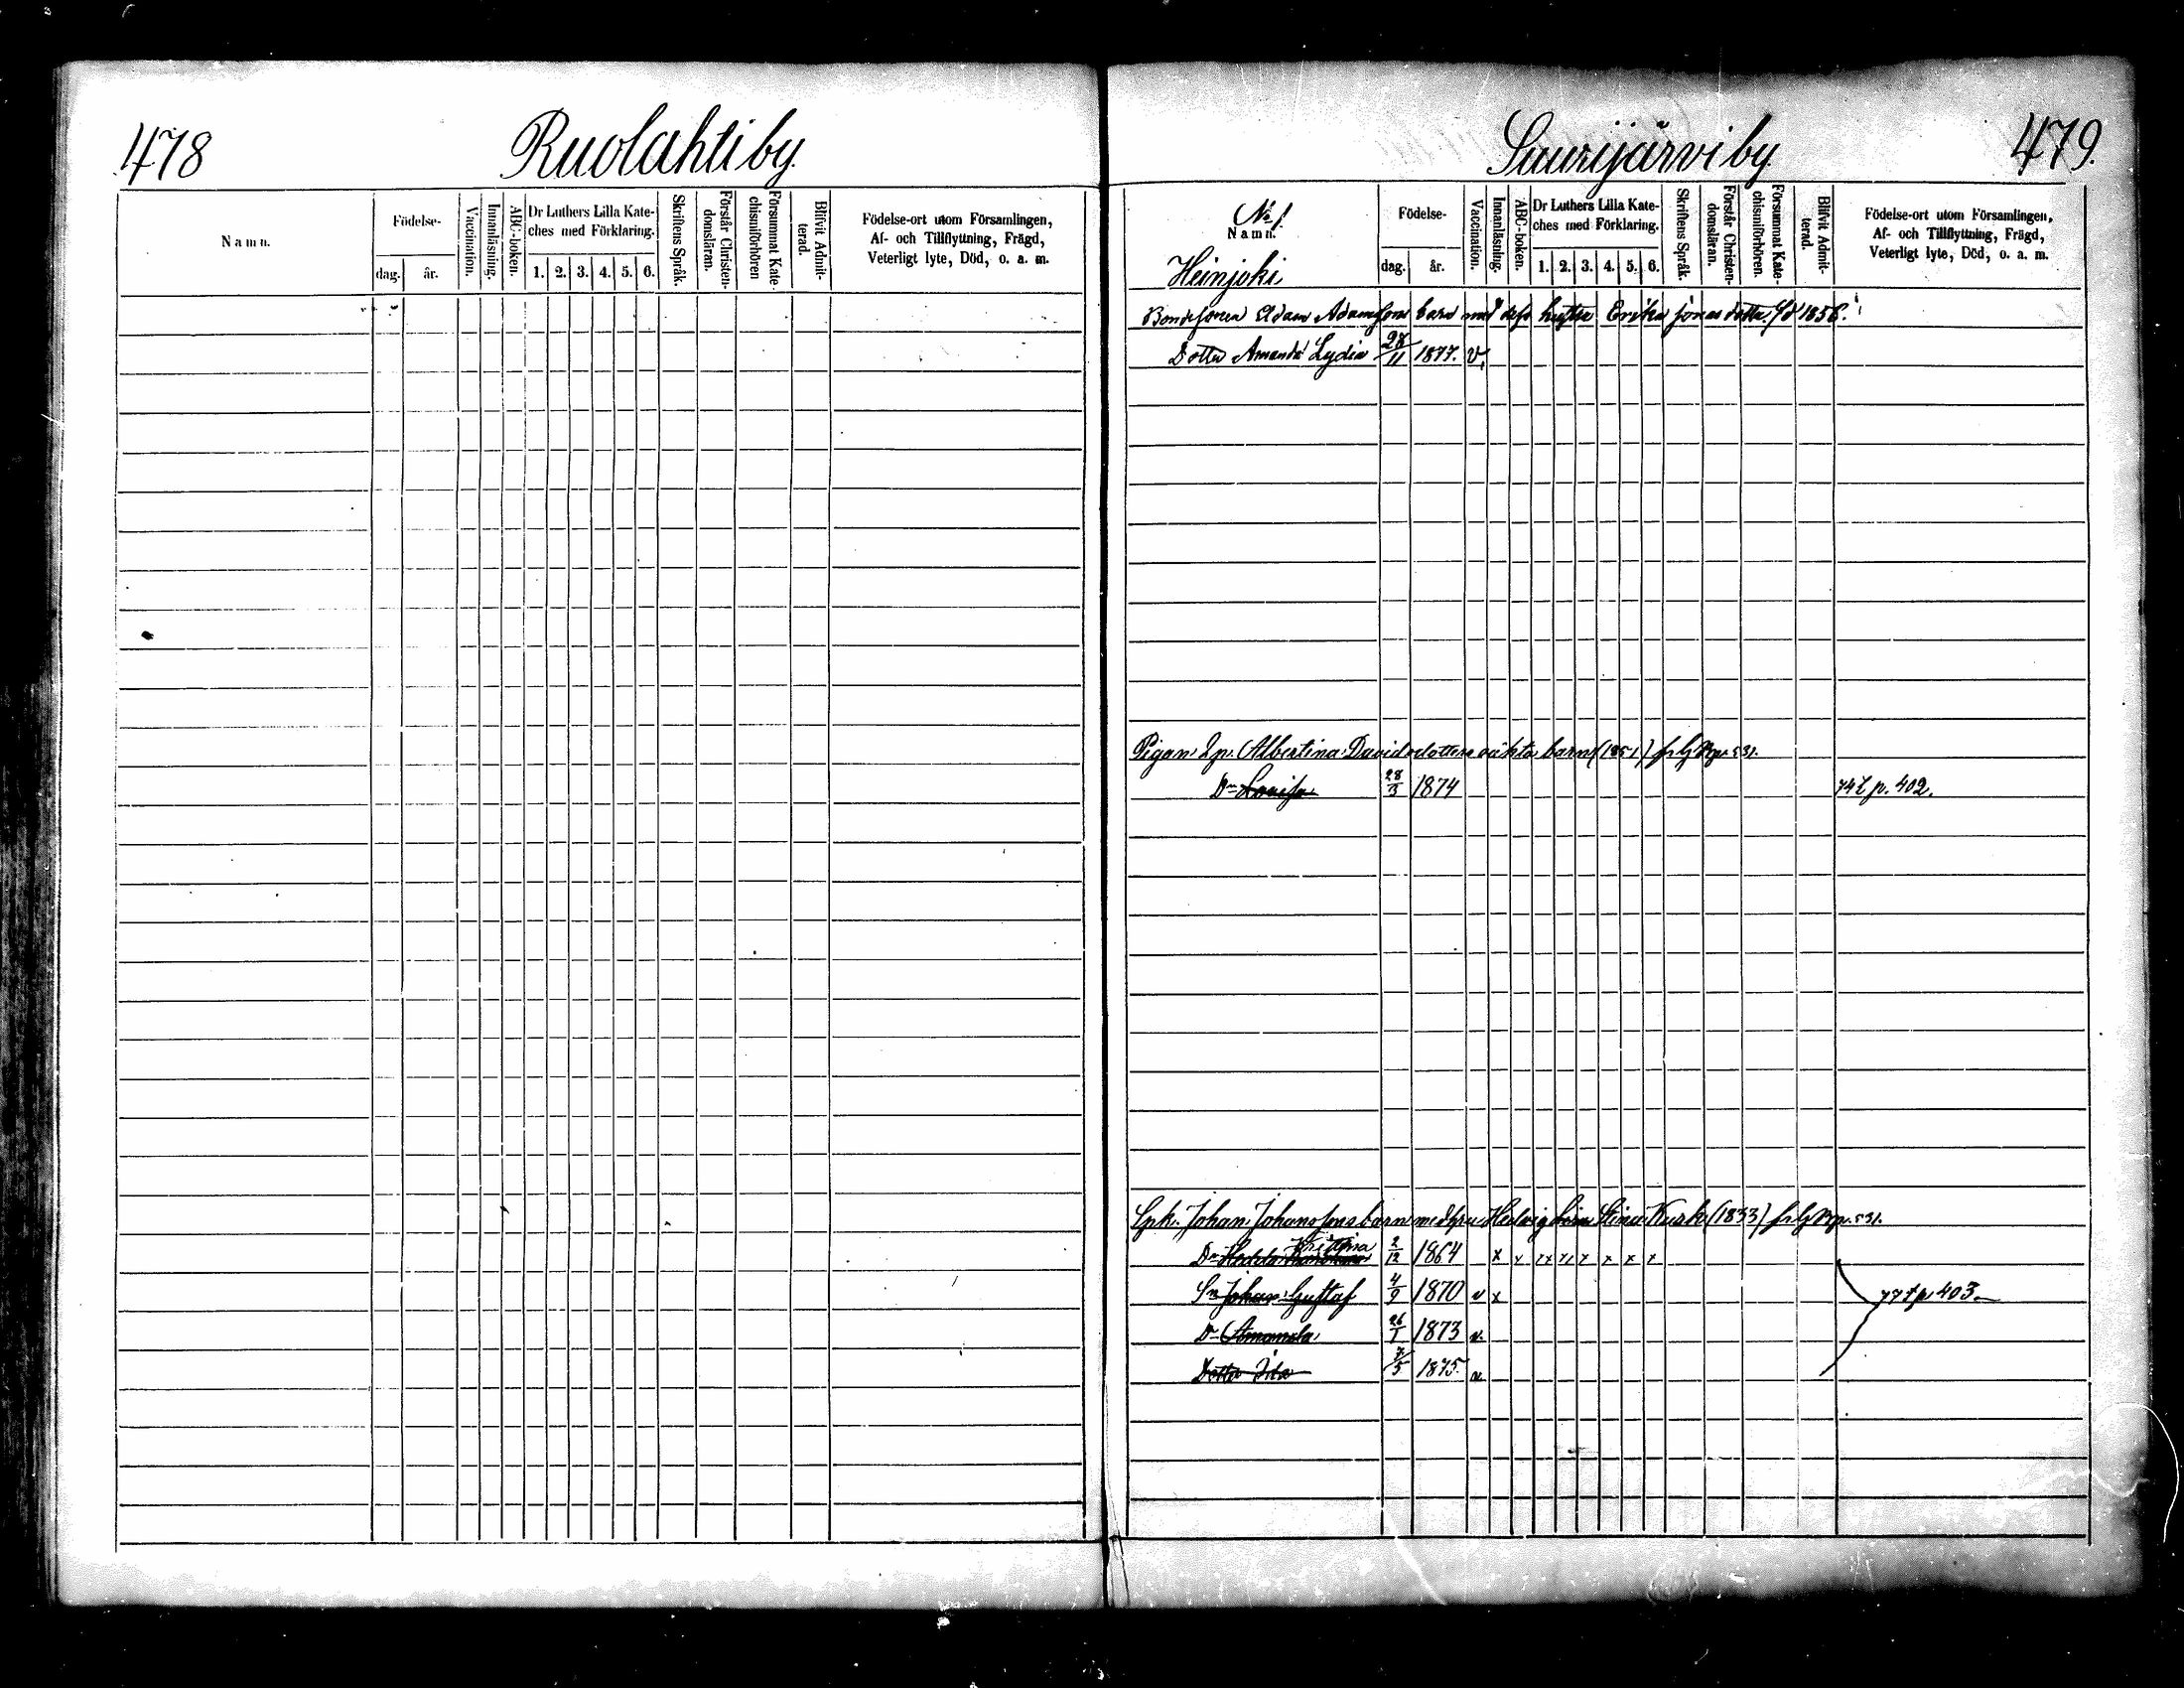 478
Ruolahti by.
Namn.
Födelse-
dag.
år.
Vaccination.
Innanläsning.
ABC-boken.
Dr Luthers Lilla Kate-
ches med Förklaring.
1. 2. 3. 4. 5. 6.
Skriftens Språk.
Förstår Christen-
domsläran.
Försummat Kate-
chismiförhören
Blifvit Admit-
terad.
Födelse-ort utom Församlingen,
Af- och Tillflyttning, Frägd,
Veterligt lyte, Död, o. a. m.
Saurijärvi by
479.
No 1.
Namn.
Heinjoki
Födelse-
dag.
år.
Vaccination.
Innanläsning.
ABC-boken.
Dr Luthers Lilla Kate-
ches med Förklaring.
1. 2. 3. 4. 5. 6.
Skriftens Språk.
Förstår Christen-
domsläran.
Försummat Kate-
chismiförhören.
Blifvit Admit-
terad.
Födelse-ort utom Församlingen,
Af- och Tillflyttning, Frägd,
Veterligt lyte, Död, o. a. m.
Bondesonen Adam Adamsons barn med dess hustru Erika Jonas dotter, fd 1856.
Dotter Amanda Lydia 28/11 1877. v,
Pigan Albertina Davidsdotters oäkta barn (1851)
Dr Lovisa 28/3 1874 74 t p. 402.
Johan Johanssons barn med Hedvig Stina Kurk (1833)
Dr Kristina 2/12 1864 x x x x x x x x x
Sn Johan Gustaf 4/9 1870 v x 77 t p 403
Dr Amanda 26/1 1873 v.
Dotter Ida 7/5 1875. v